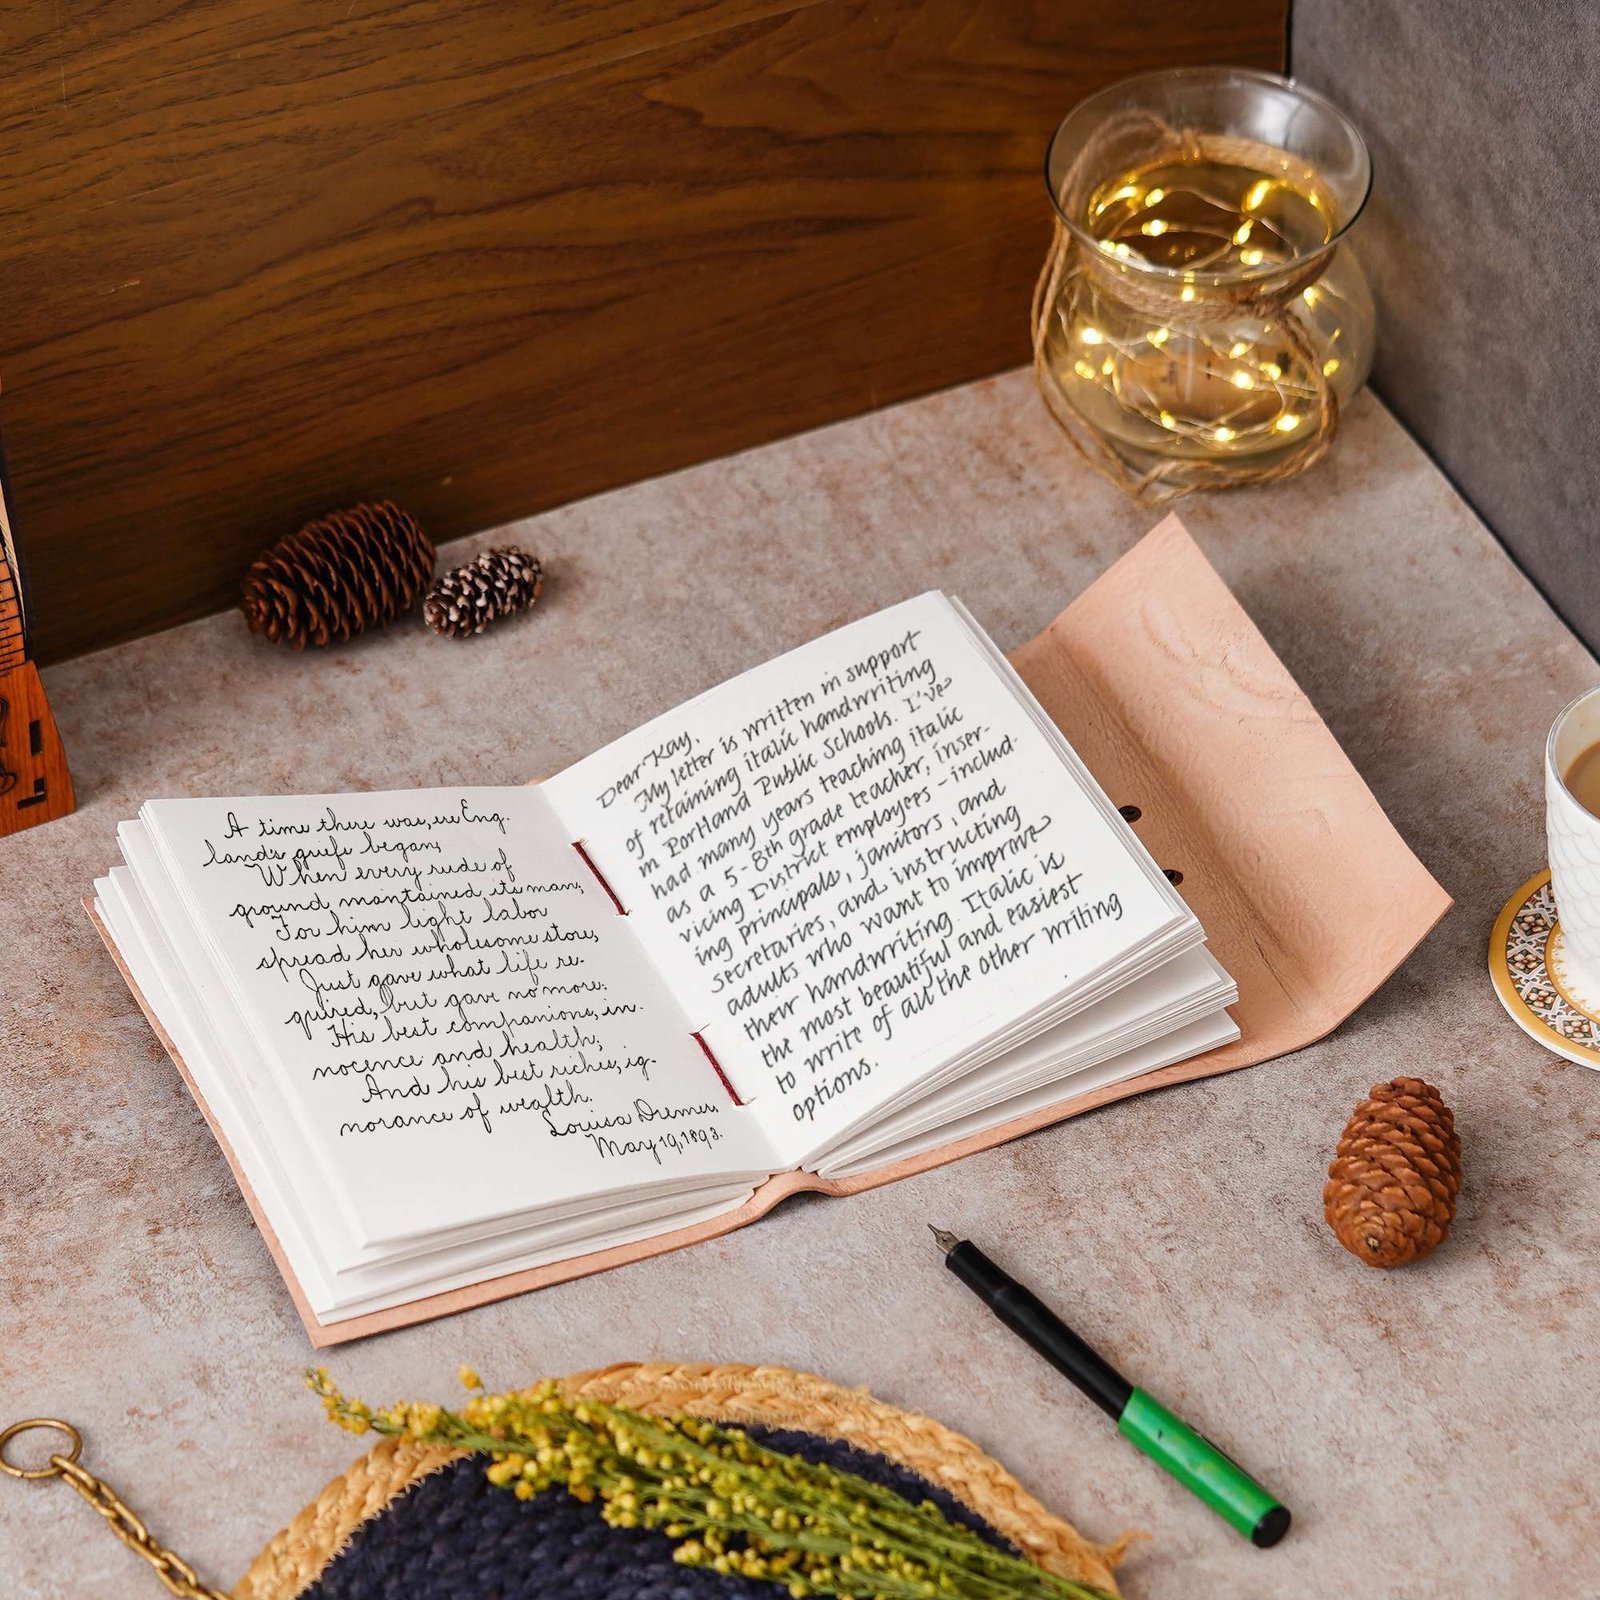 A time there was, ere Eng.
land's griefs began,
When every rude of
ground maintained its man;
For him light labor
spread her wholesome store,
Just gave what life re-
quired, but gave no more:
His best companions, in.
nocence and health;
And his best riches, ig-
norance of wealth.
Louisa
May 19, 1893.
Dear Kay,
My letter is written in support
of retaining italic handwriting
in Portland Public Schools. I've
had many years teaching italic
as a 5-8th grade teacher, inser-
vicing District employees - includ-
ing principals, janitors, and
secretaries, and instructing
adults who want to improve
their handwriting. Italic is
the most beautiful and easiest
to write of all the other writing
options.